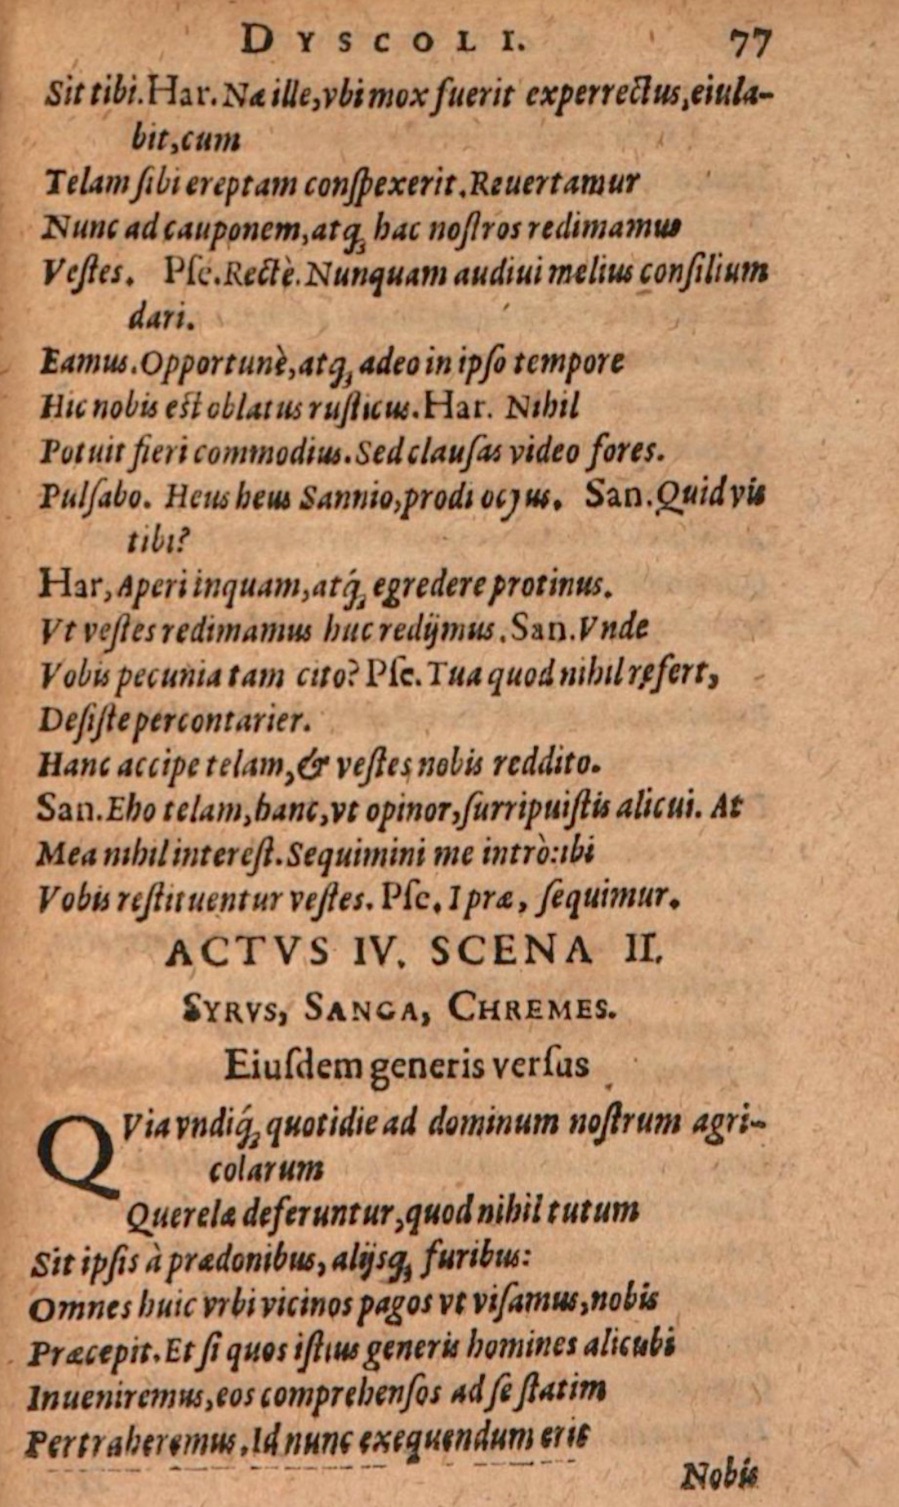 DYSCOLI. 77
Sit tibi. Har. Næ ille, vbi mox fuerit experrectus, eiula-
bit, cum
Telam ſibi ereptam conſpexerit. Reuertamur
Nunc ad cauponem, atq; hac noſtros redimamus
Veſtes. Pſe. Rectè. Nunquam audiui melius conſilium
dari.
Eamus. Opportunè, atq; adeo in ipſo tempore
Hic nobis eſt oblatus ruſticus. Har. Nihil
Potuit fieri commodius. Sed clauſas video fores.
Pulſabo. Heus heus Sannio, prodi ocyus. San. Quid vis
tibi?
Har, Aperi inquam, atq́; egredere protinus.
Vt veſtes redimamus huc redijmus. San. Vnde
Vobis pecunia tam cito? Pſe. Tua quod nihil refert,
Deſiſte percontarier.
Hanc accipe telam, & veſtes nobis reddito.
San. Eho telam, hanc, vt opinor, ſurripuiſtis alicui. At
Mea nihil intereſt. Sequimini me intrò: ibi
Vobis reſtituentur veſtes. Pſe. I præ, ſequimur.
ACTVS IV. SCENA II.
SYRVS, SANGA, CHREMES.
Eiuſdem generis verſus
QVia vndiq́; quotidie ad dominum noſtrum agri-
colarum
Querelæ deferuntur, quod nihil tutum
Sit ipſis à prædonibus, alijsq; furibus:
Omnes huic vrbi vicinos pagos vt viſamus, nobis
Præcepit. Et ſi quos iſtius generis homines alicubi
Inueniremus, eos comprehenſos ad ſe ſtatim
Pertraheremus. Id nunc exequendum erit
Nobis